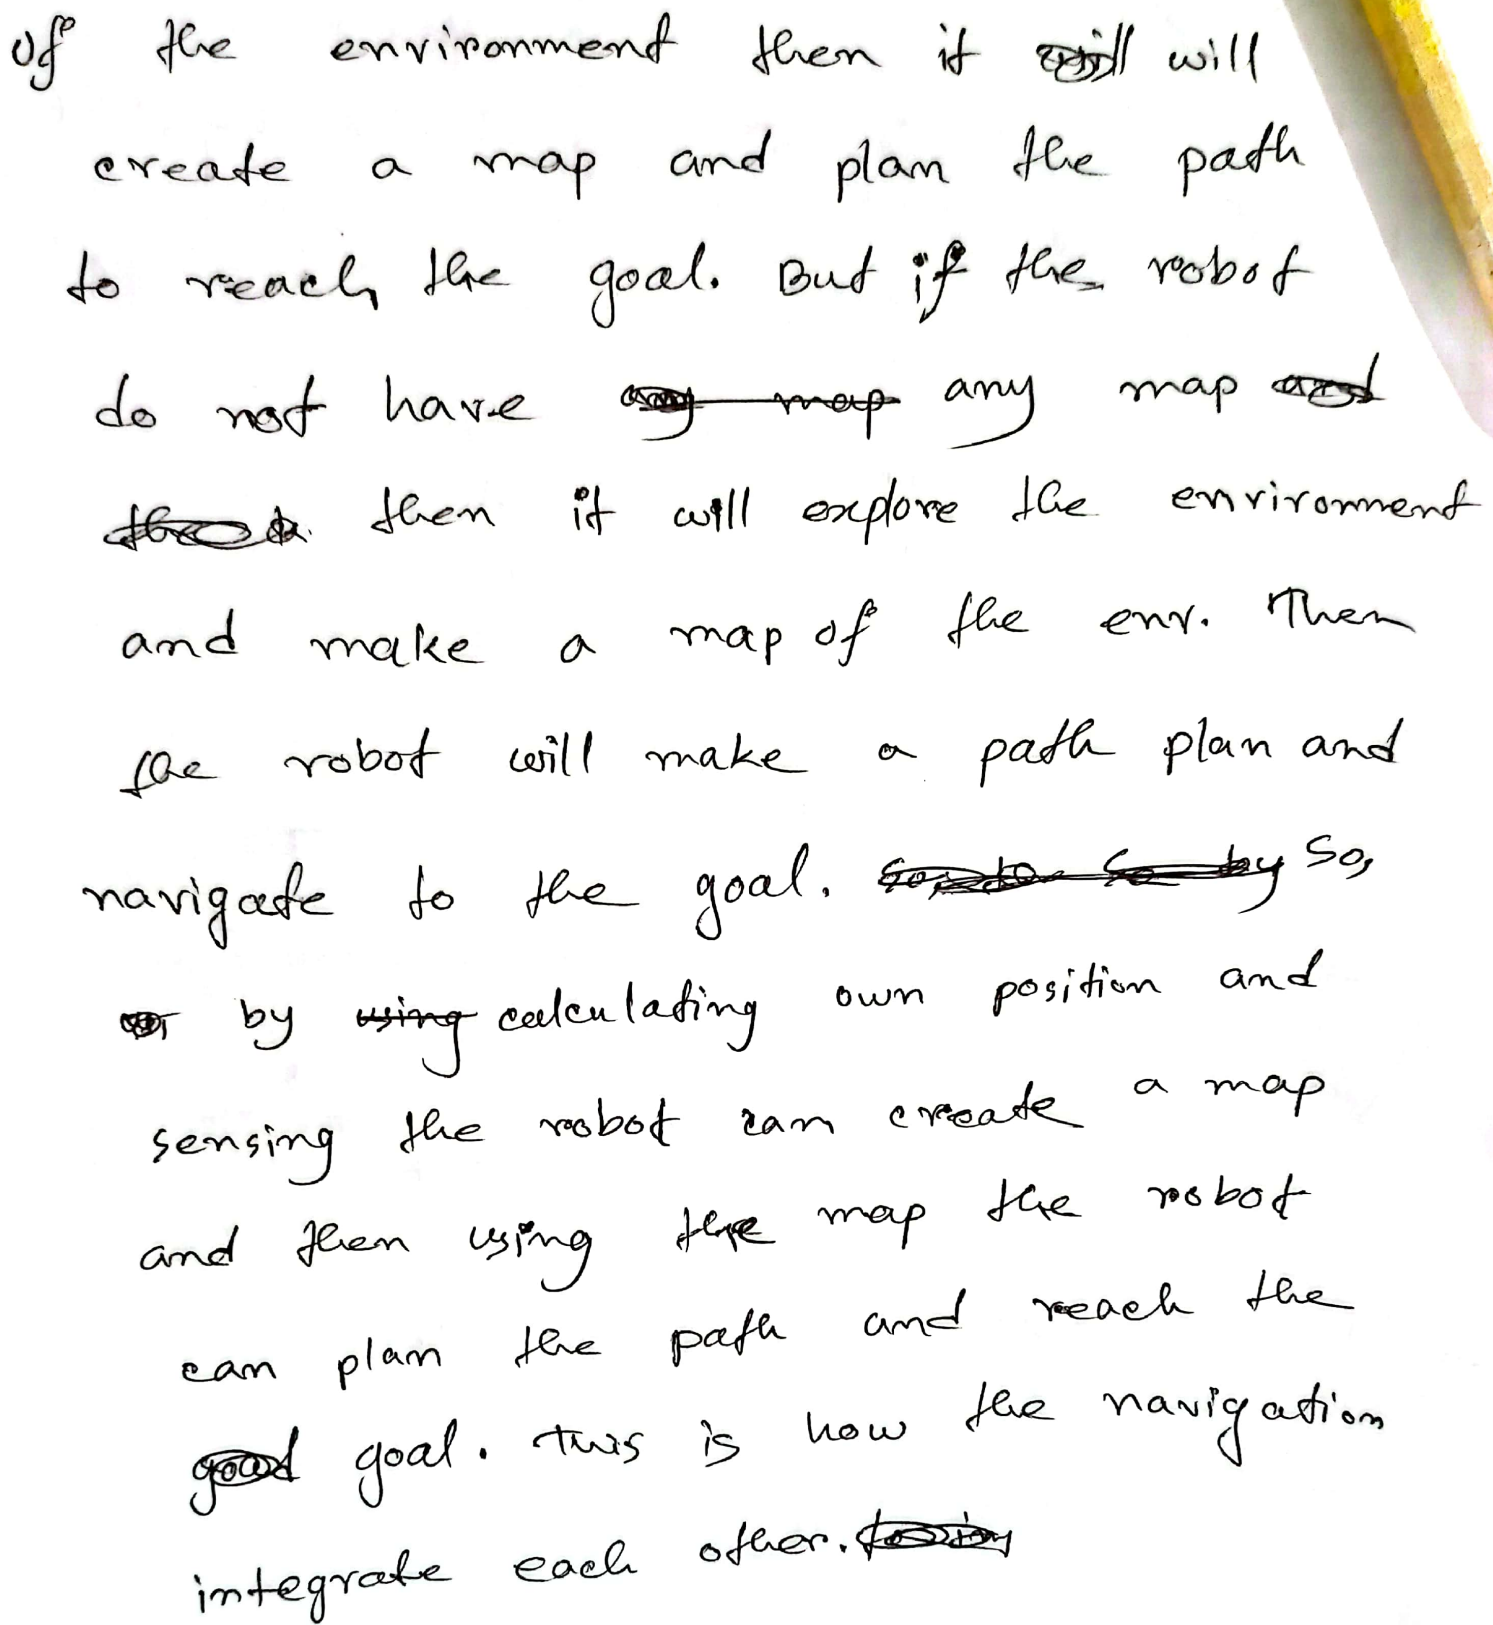 of the environment then it will
create a map and plan the path
to reach the goal. But if the robot
do not have any map
then it will explore the environment
and make a map of the env. Then
the robot will make a path plan and
navigate to the goal. So,
by calculating own position and
sensing the robot can create a map
and then using the map the robot
can plan the path and reach the
goal. This is how the navigation
integrate each other.